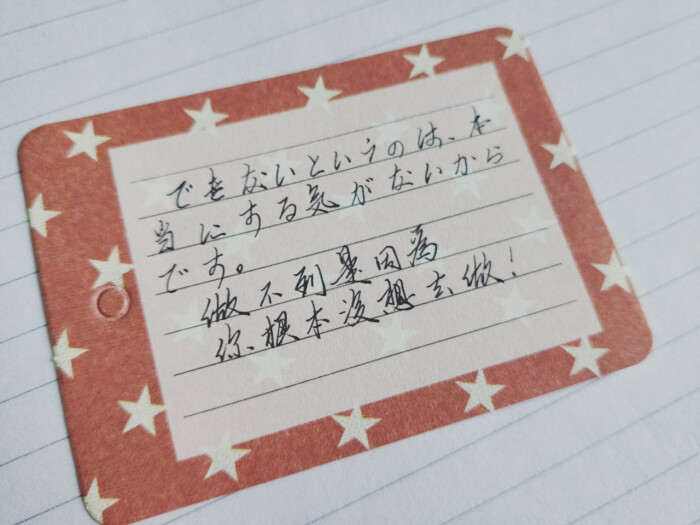 できないというのは、本
当にする気がないから
です。
做不到是因為
你根本沒想去做！